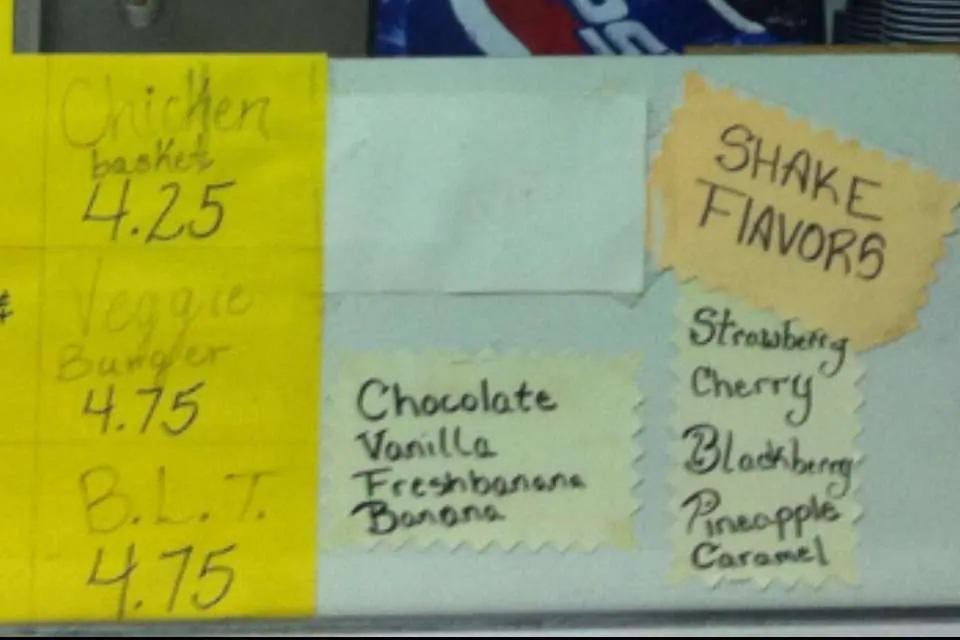 Chicken
basket
4.25
Veggie
Burger
4.75
B.L.T.
4.75
Chocolate
Vanilla
Freshbanana
Banana
SHAKE
FLAVORS
Strawberry
Cherry
Blackberry
Pineapple
Caramel